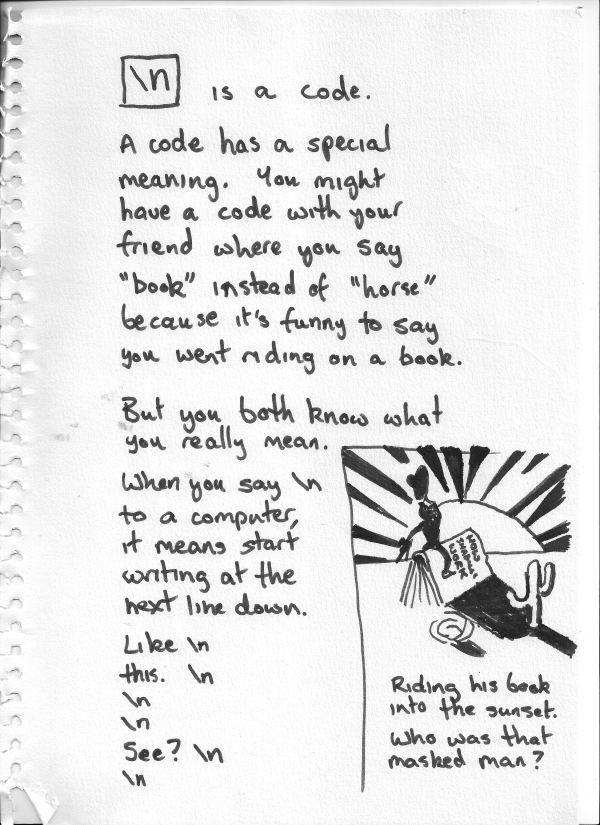 \n is a code.
A code has a special
meaning. You might
have a code with your
friend where you say
"book" instead of "horse"
because it's funny to say
you went riding on a book.
But you both know what
you really mean.
When you say \n
to a computer,
it means start
writing at the
next line down.
Like \n
this. \n
\n
\n
See? \n
\n
HOW
WORK
Riding his book
into the sunset.
Who was that
masked man?